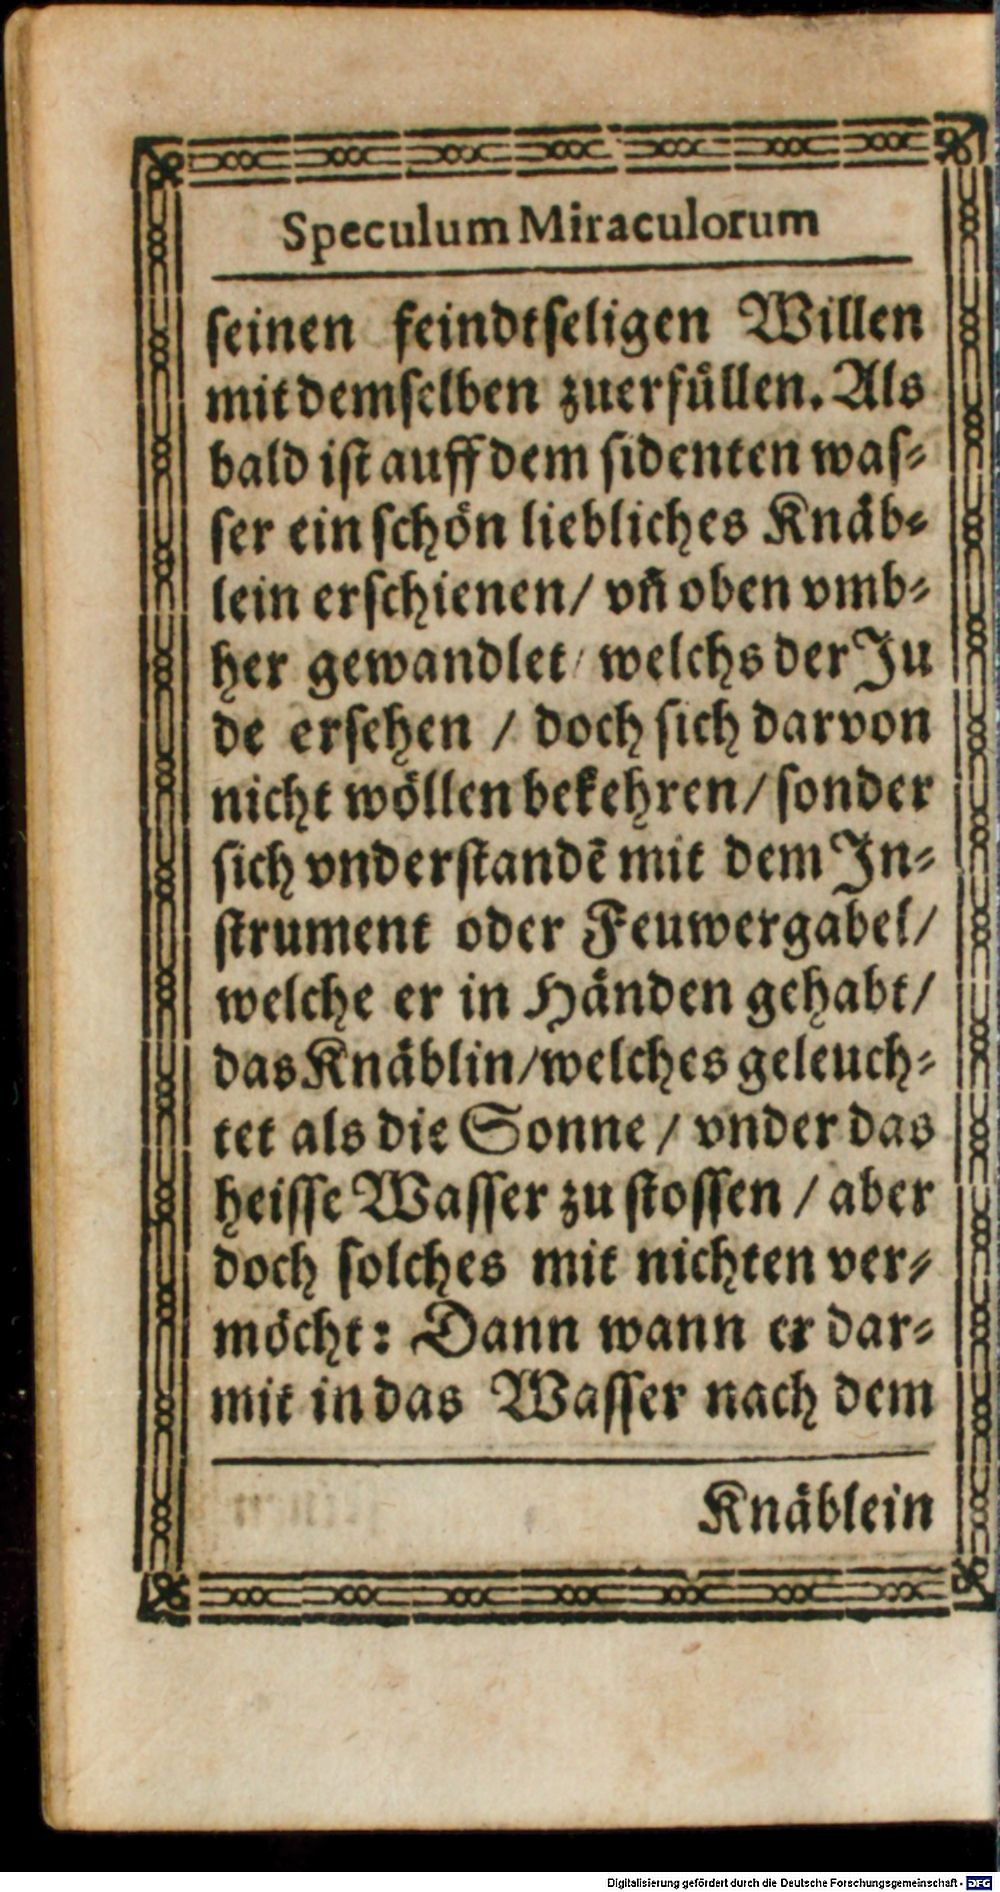 Speculum Miraculorum
seinen feindtseligen Willen
mit demselben zuerfüllen. Als
bald ist auff dem sidenten was-
ser ein schön liebliches Knäb-
lein erschienen/ vñ oben vmb-
her gewandlet/ welchs der Ju
de ersehen / doch sich darvon
nicht wöllen bekehren/ sonder
sich vnderstandẽ mit dem In-
strument oder Feuwergabel/
welche er in Händen gehabt/
das Knäblin/welches geleuch-
tet als die Sonne / vnder das
heisse Wasser zu stossen / aber
doch solches mit nichten ver-
möcht: Dann wann er dar-
mit in das Wasser nach dem
Knäblein
Digitalisierung gefördert durch die Deutsche Forschungsgemeinschaft - DFG